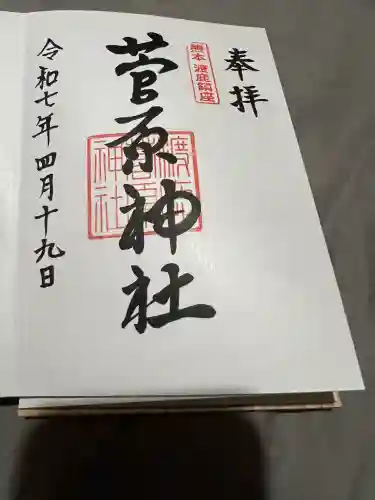 奉拝
熊本 渡鹿鎮座
菅原神社
渡鹿菅原神社
令和七年四月十九日